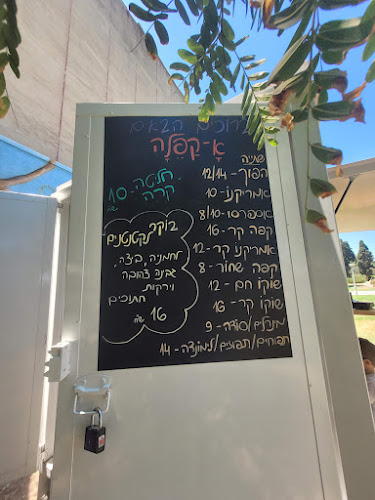 ברוכים הבאים
א-קפלה
שתיה
הפוך - 12/14
אמריקנו - 10
אספרסו - 8/10
קפה קר - 16
אמריקנו קר - 12
קפה שחור - 8
שוקו חם - 12
שוקו קר - 16
מנגלים/סודה - 9
תפוחים/תפוזים/לימונדה - 14
חליטה - 10
קרה
בוקר
קטנטנים
לחמניה, ביצה,
גבינה צהובה
וירקות
חתוכים
16 ש"ח